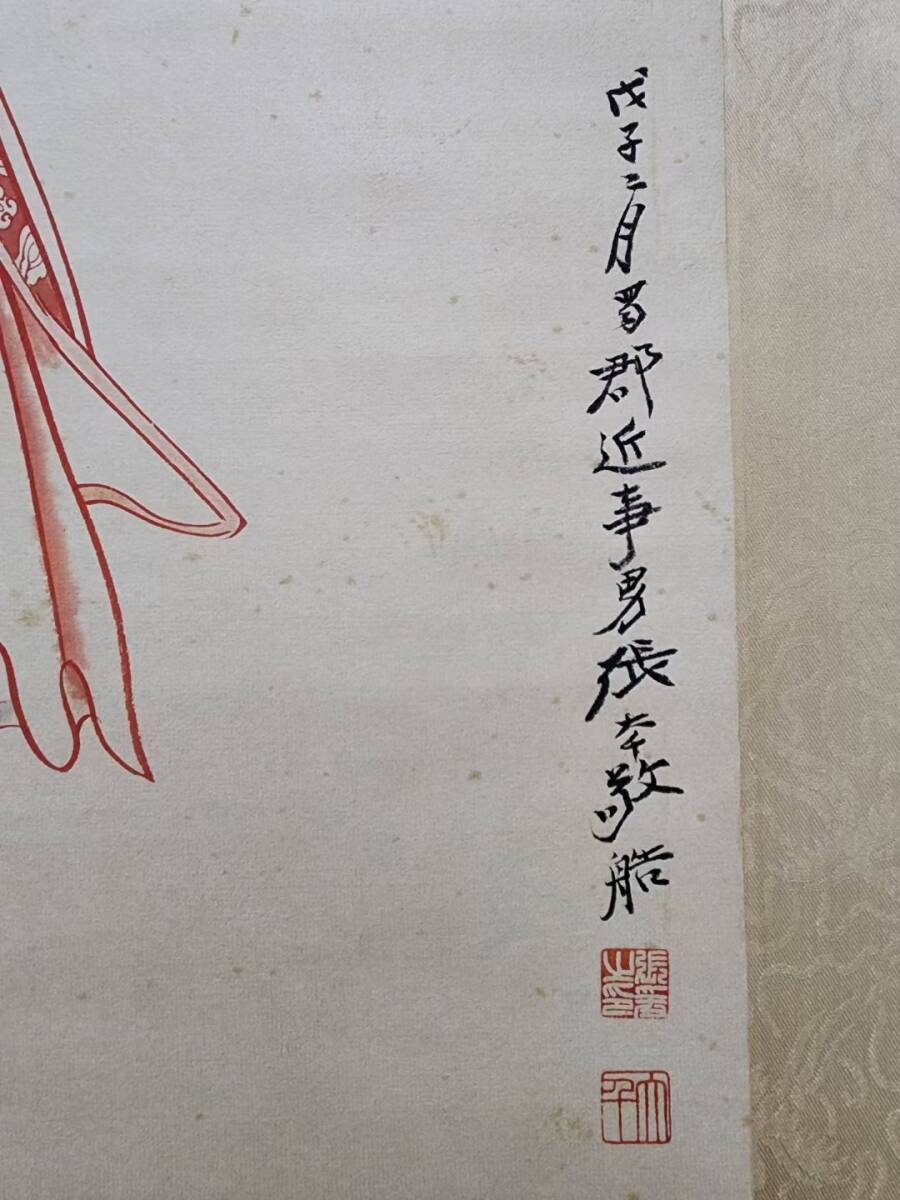 戊子二月蜀郡近事男張大千敬造
張爰之印
大千